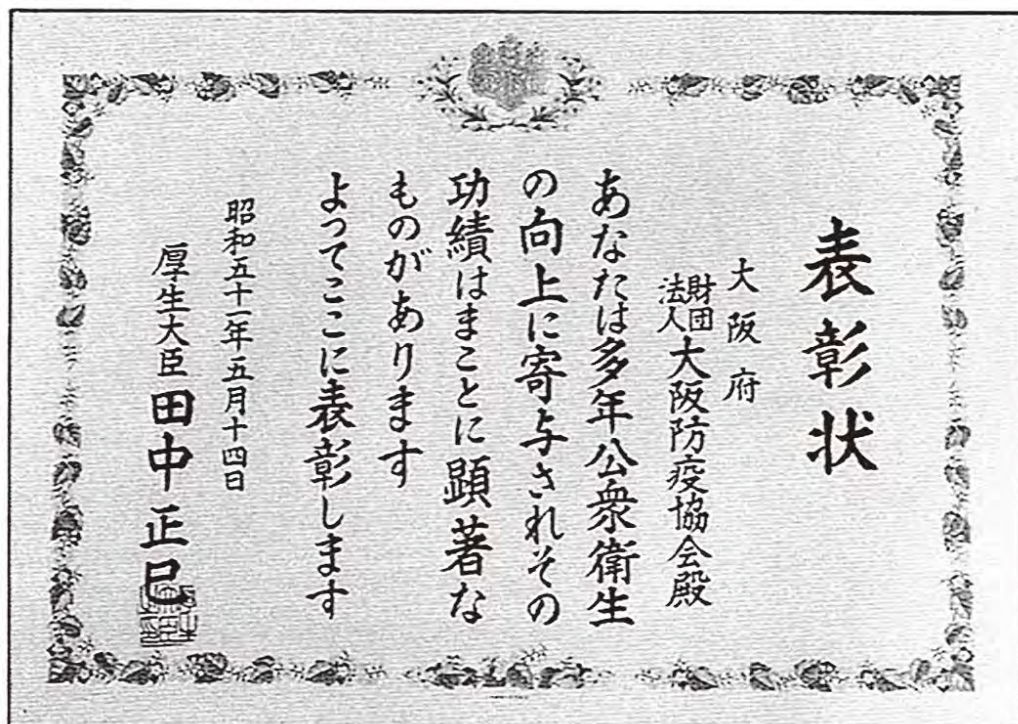 表彰状
大阪府
財団法人大阪防疫協会殿
あなたは多年公衆衛生
の向上に寄与されその
功績はまことに顕著な
ものがあります
よってここに表彰します
昭和五十一年五月十四日
厚生大臣田中正巳